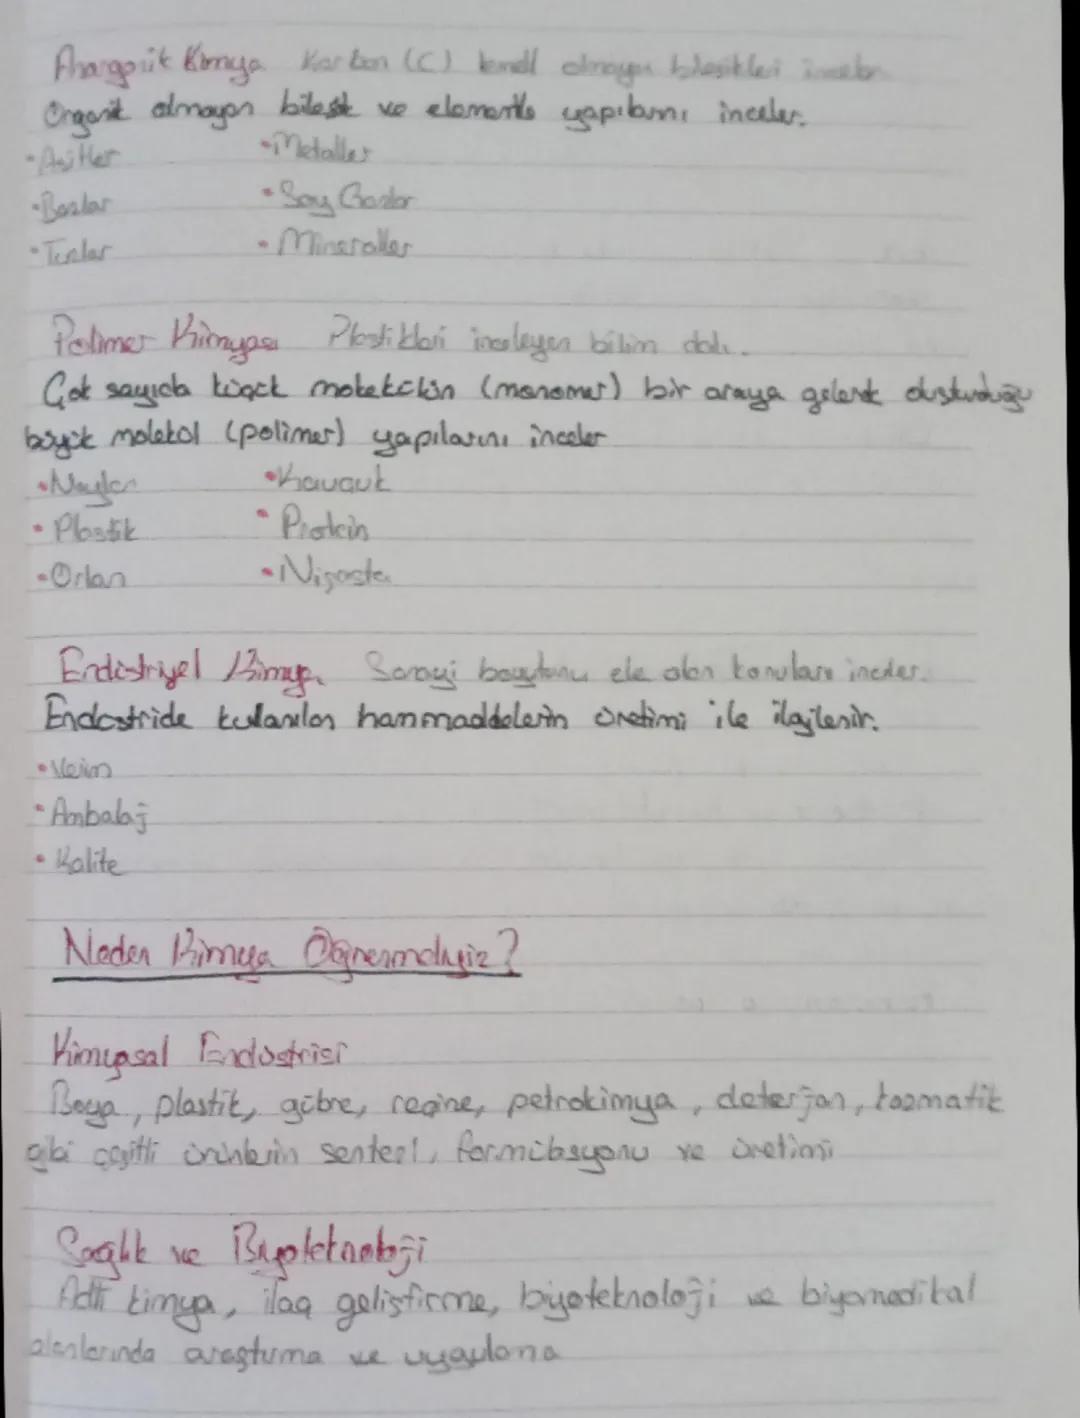 Anargonik Kimya Karbon (C) temelli olmayan bileşikleri inceler
Organik olmayan bileşik ve elementle yapılarını inceler.
•Asitler •Metaller
•Bazlar •Soy Gazlar
•Tuzlar •Mineraller
Polimer Kimyası Plastikleri inceleyen bilim dalı.
Çok sayıda küçük molekülün (monomer) bir araya gelerek oluşturduğu
büyük molekül (polimer) yapılarını inceler
•Naylon •Kauçuk
•Plastik •Protein
•Orlon •Nişasta
Endüstriyel Kimya Sanayi boyutunu ele alan konuları inceler.
Endüstride kullanılan hammaddelerin üretimi ile ilgilenir.
•Verim
•Ambalaj
•Kalite
Neden Kimya Öğrenmeliyiz?
Kimyasal Endüstrisi
Boya, plastik, gübre, reçine, petrokimya, deterjan, kozmatik
gibi çeşitli ürünlerin sentezi, formülasyonu ve üretimi
Sağlık ve Biyoteknoloji
Adli kimya, ilaç geliştirme, biyoteknoloji ve biyomedikal
alanlarında araştırma ve uygulama